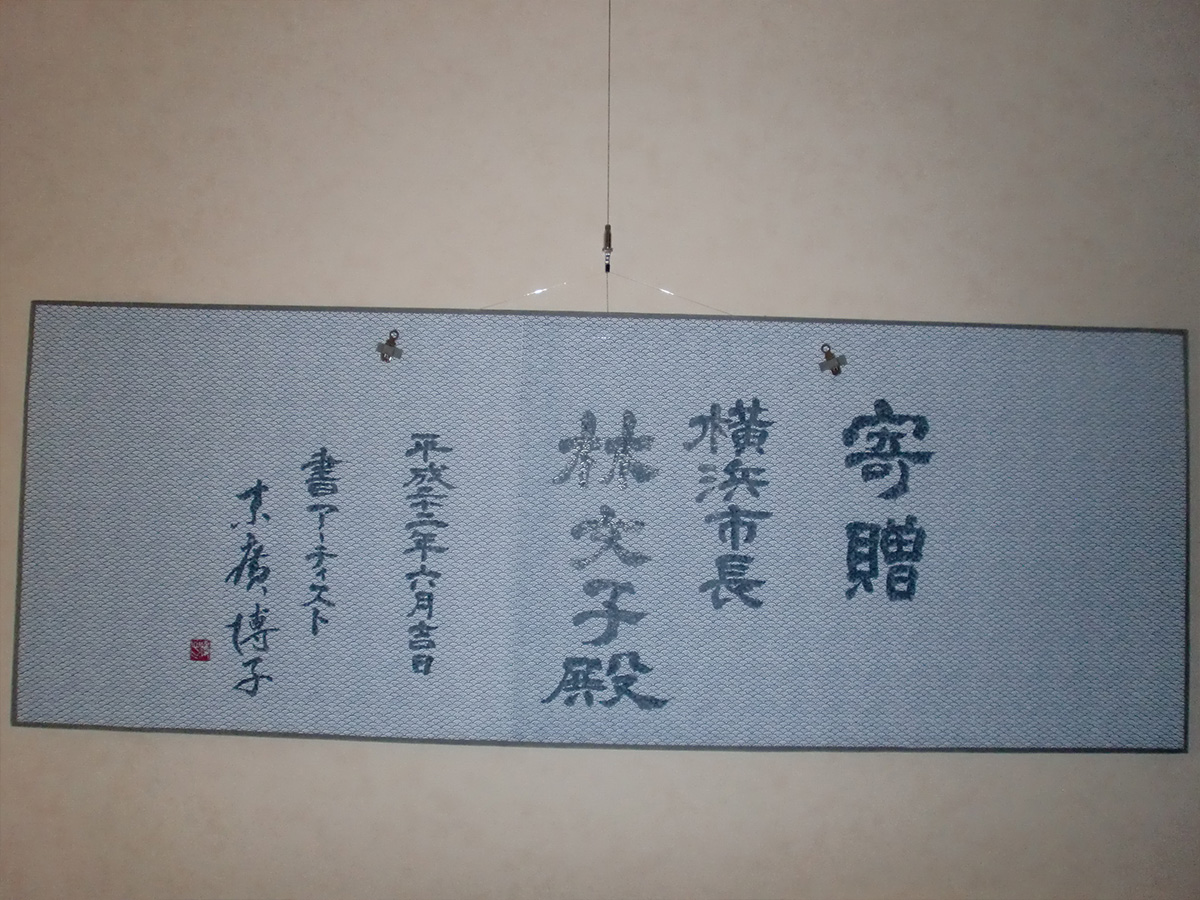 寄贈
横浜市長
林文子殿
平成二十二年六月吉日
書アーティスト
末廣博子